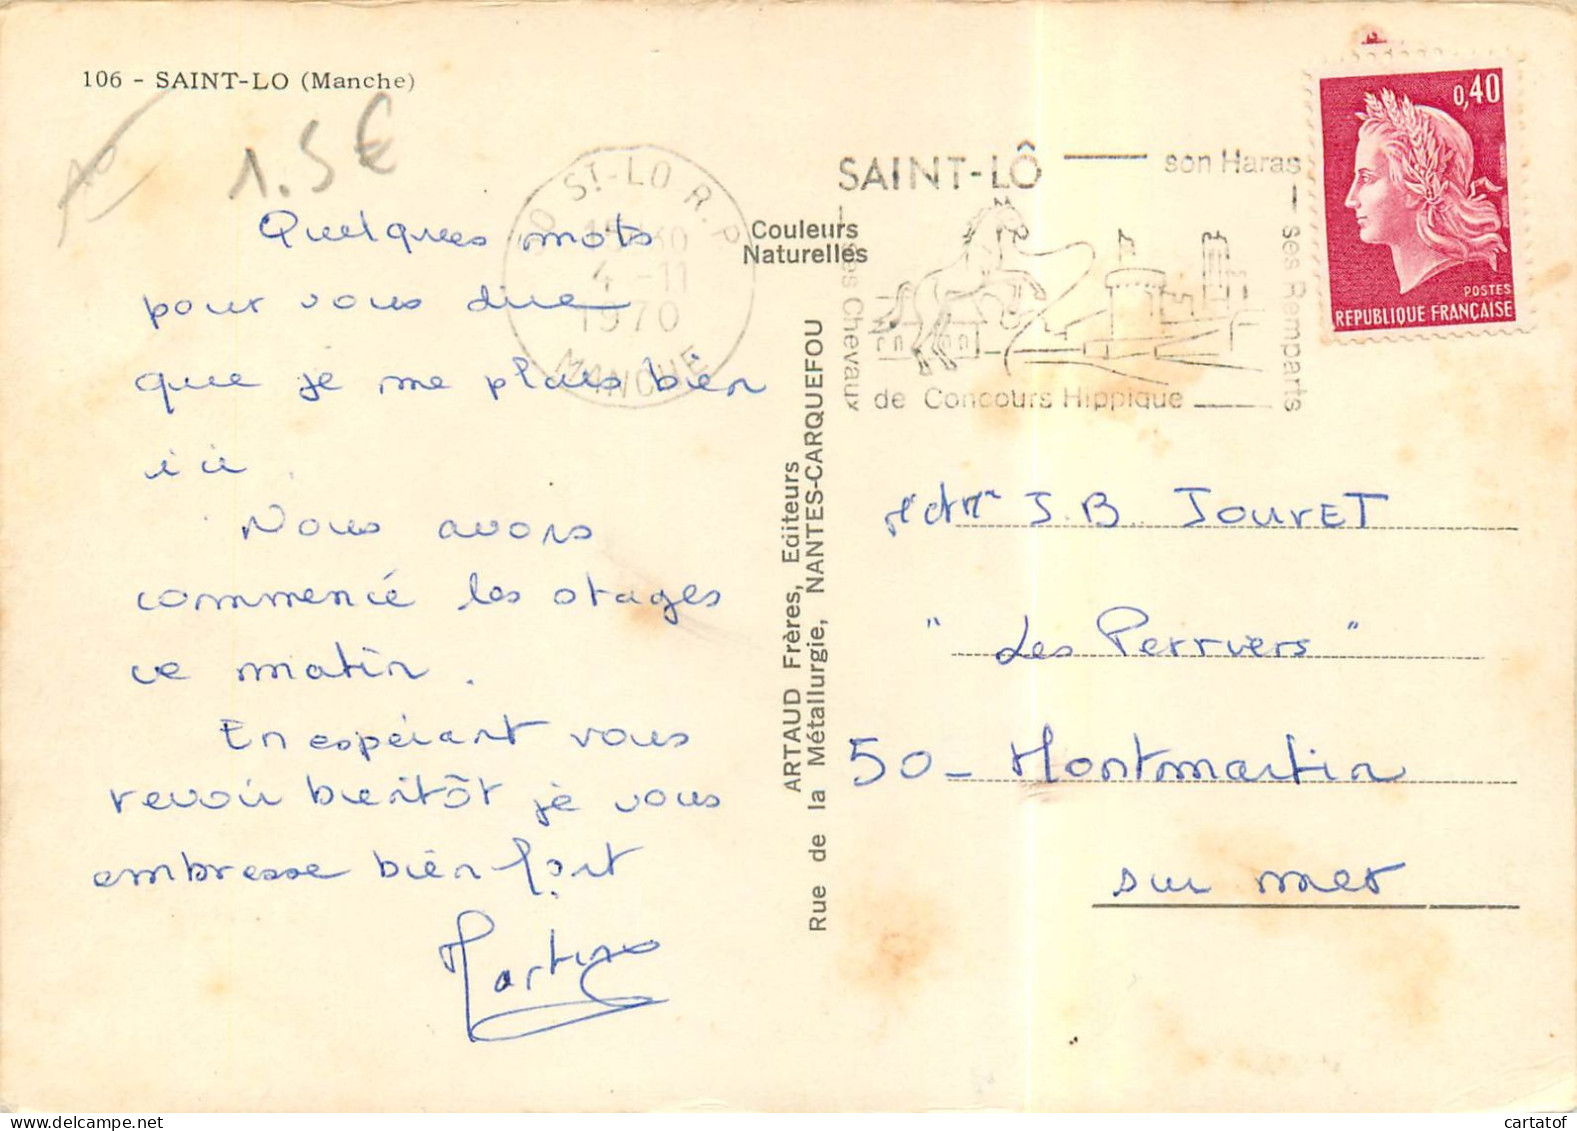 106 - SAINT-LO (Manche)
1.5€
Quelques mots
pour vous dire
que je me plais bien
ici.
Nous avons
commencé les stages
ce matin.
En espérant vous
revoir bientôt je vous
embrasse bien fort
Martine
50 ST-LO R.P
15H30
4-11
1970
MANCHE
Couleurs
Naturelles
ARTAUD Frères, Editeurs
Rue de la Métallurgie, NANTES-CARQUEFOU
SAINT-LÔ
son Haras
ses Remparts
ses Chevaux
de Concours Hippique
0,40
POSTES
REPUBLIQUE FRANÇAISE
J.B. JOUVET
"Les Perriers"
50 - Montmartin
sur mer
cartatof